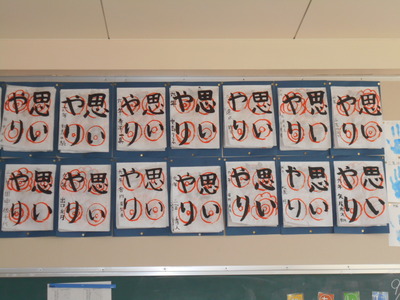 思いやり
思いやり
思いやり
思いやり
思いやり
思いやり
思いやり
思いやり
思いやり
思いやり
思いやり
思いやり
思いやり
思いやり